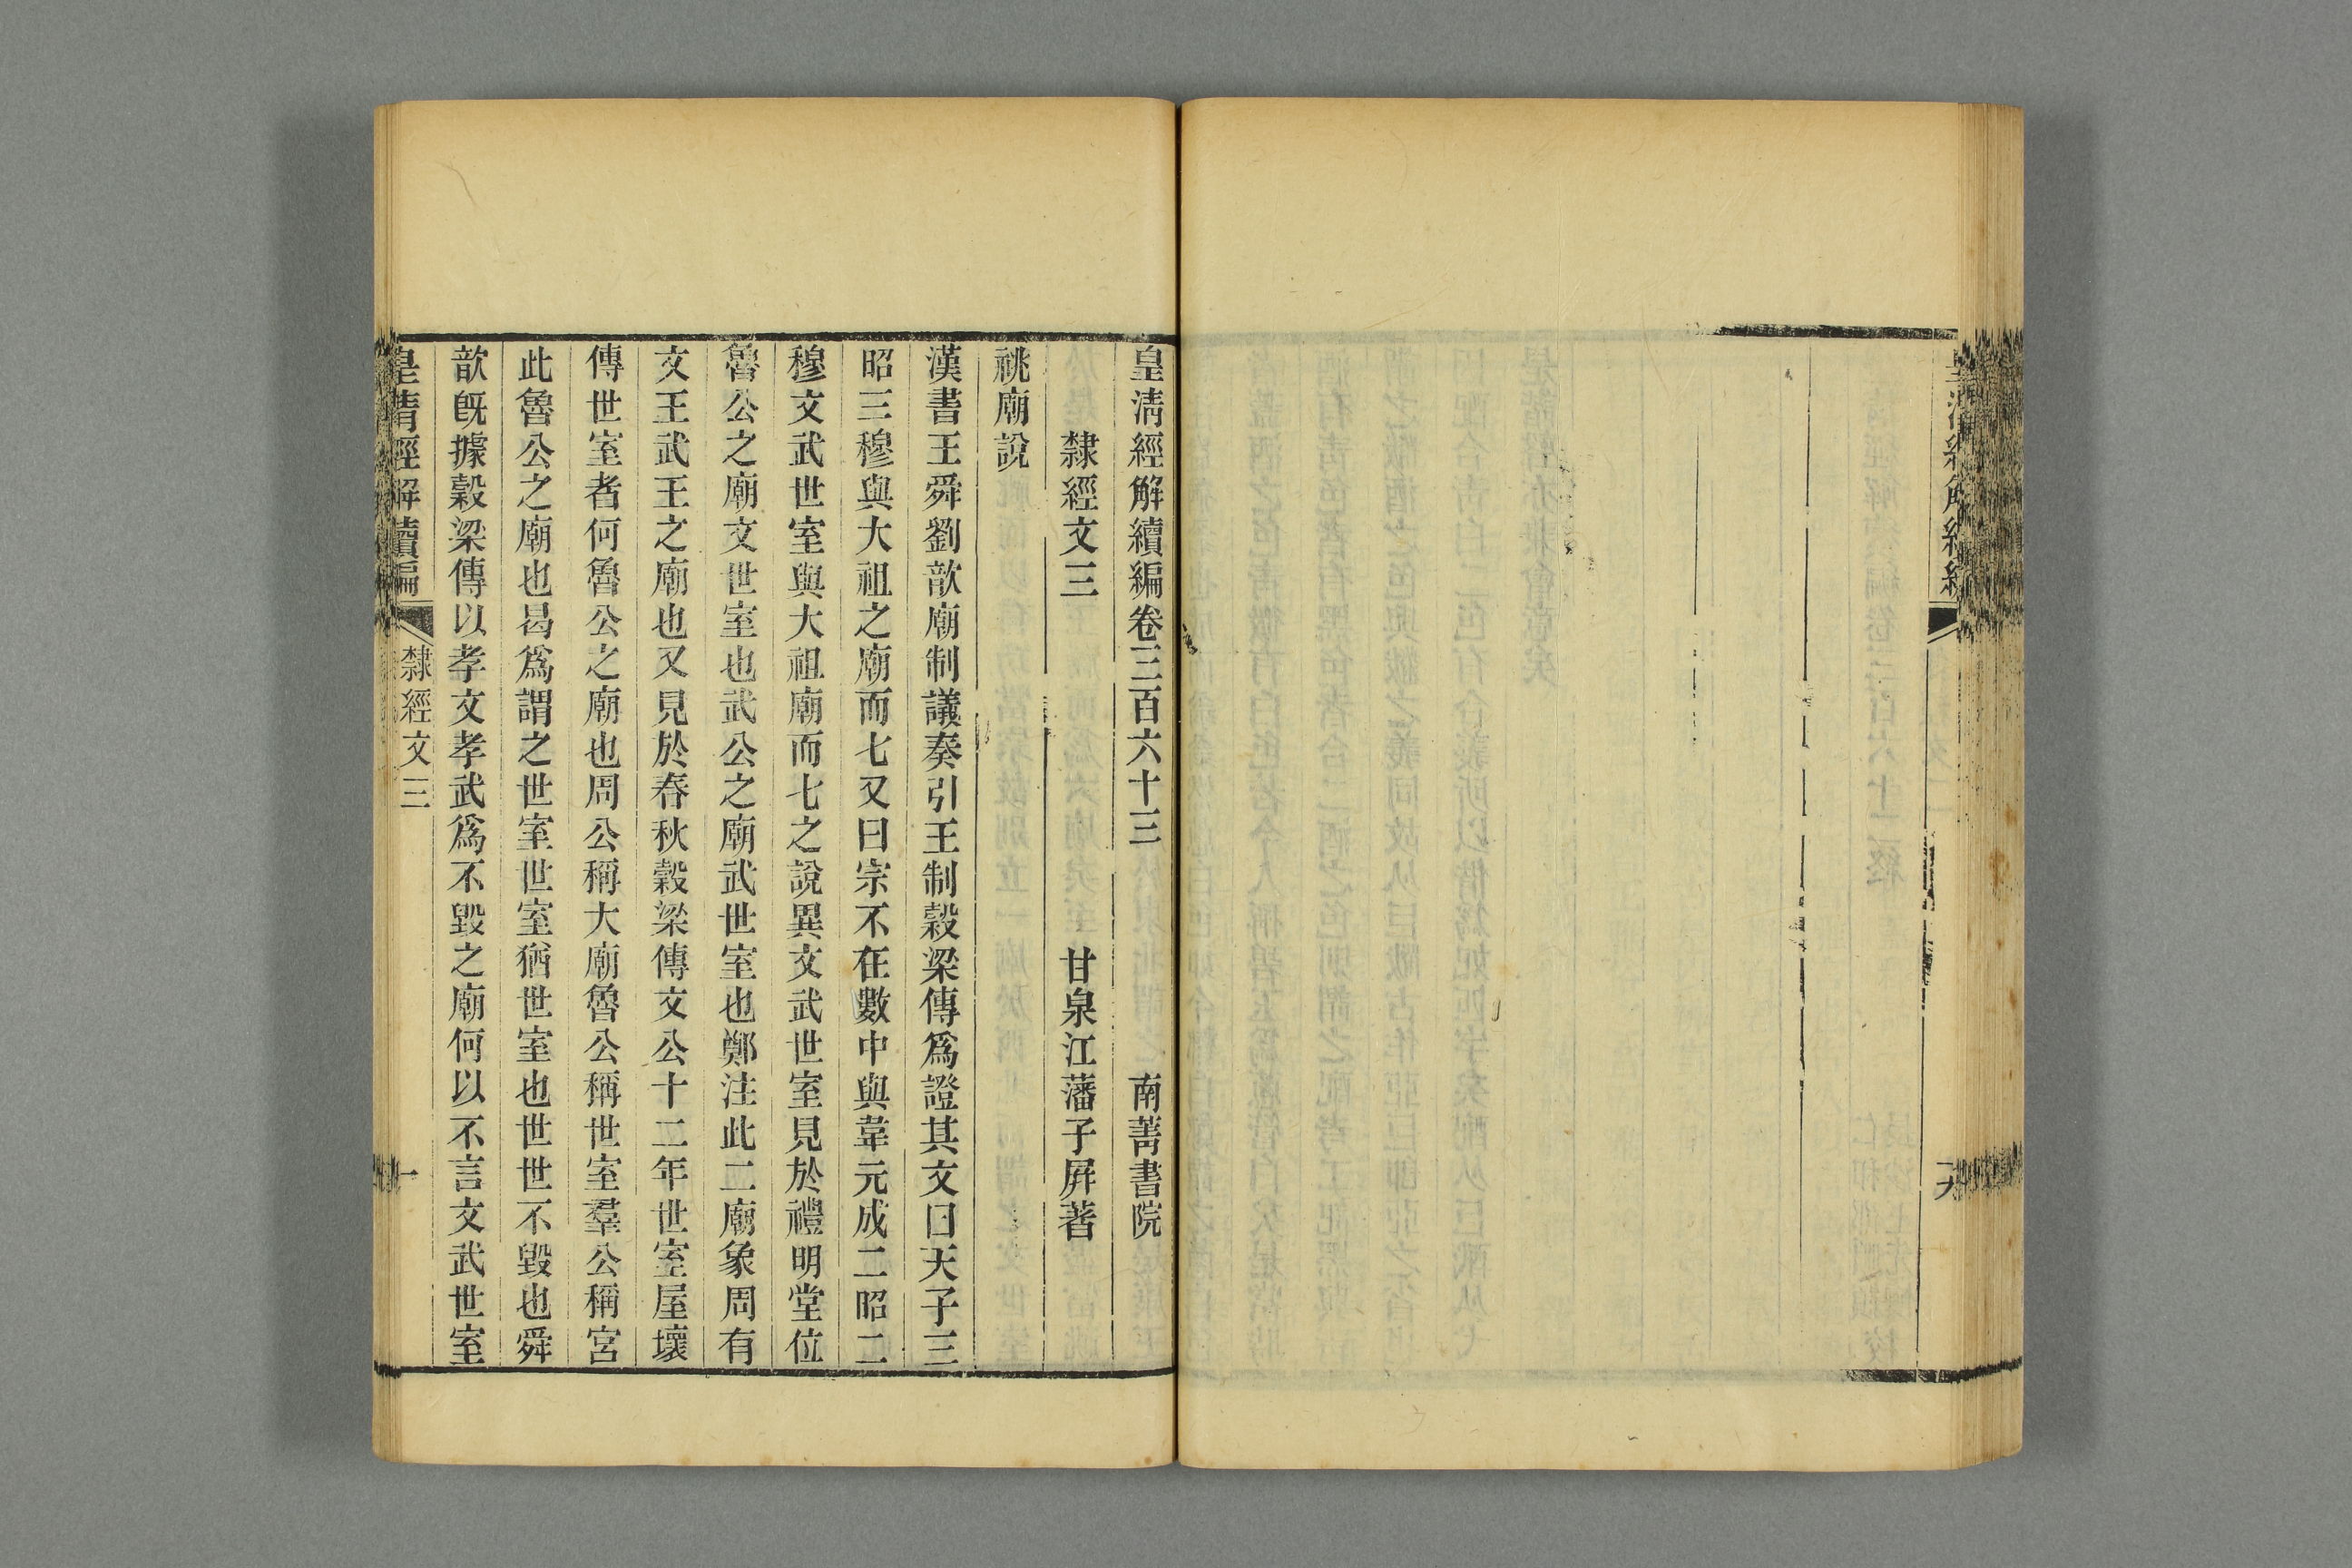 皇清經解續編卷三百六十三　南菁書院
隸經文三　甘泉江藩子屏著
祧廟說
漢書王舜劉歆廟制議奏引王制穀梁傳爲證其文曰天子三
昭三穆與大祖之廟而七又曰宗不在數中與韋元成二昭二
穆文武世室與大祖廟而七之說異文武世室見於禮明堂位
魯公之廟文世室也武公之廟武世室也鄭注此二廟象周有
文王武王之廟也又見於春秋穀梁傳文公十二年世室屋壞
傳世室者何魯公之廟也周公稱大廟魯公稱世室羣公稱宮
此魯公之廟也曷爲謂之世室世室猶世室也世世不毀也舜
歆旣據穀梁傳以孝文孝武爲不毀之廟何以不言文武世室
皇清經解續編　隸經文三　一